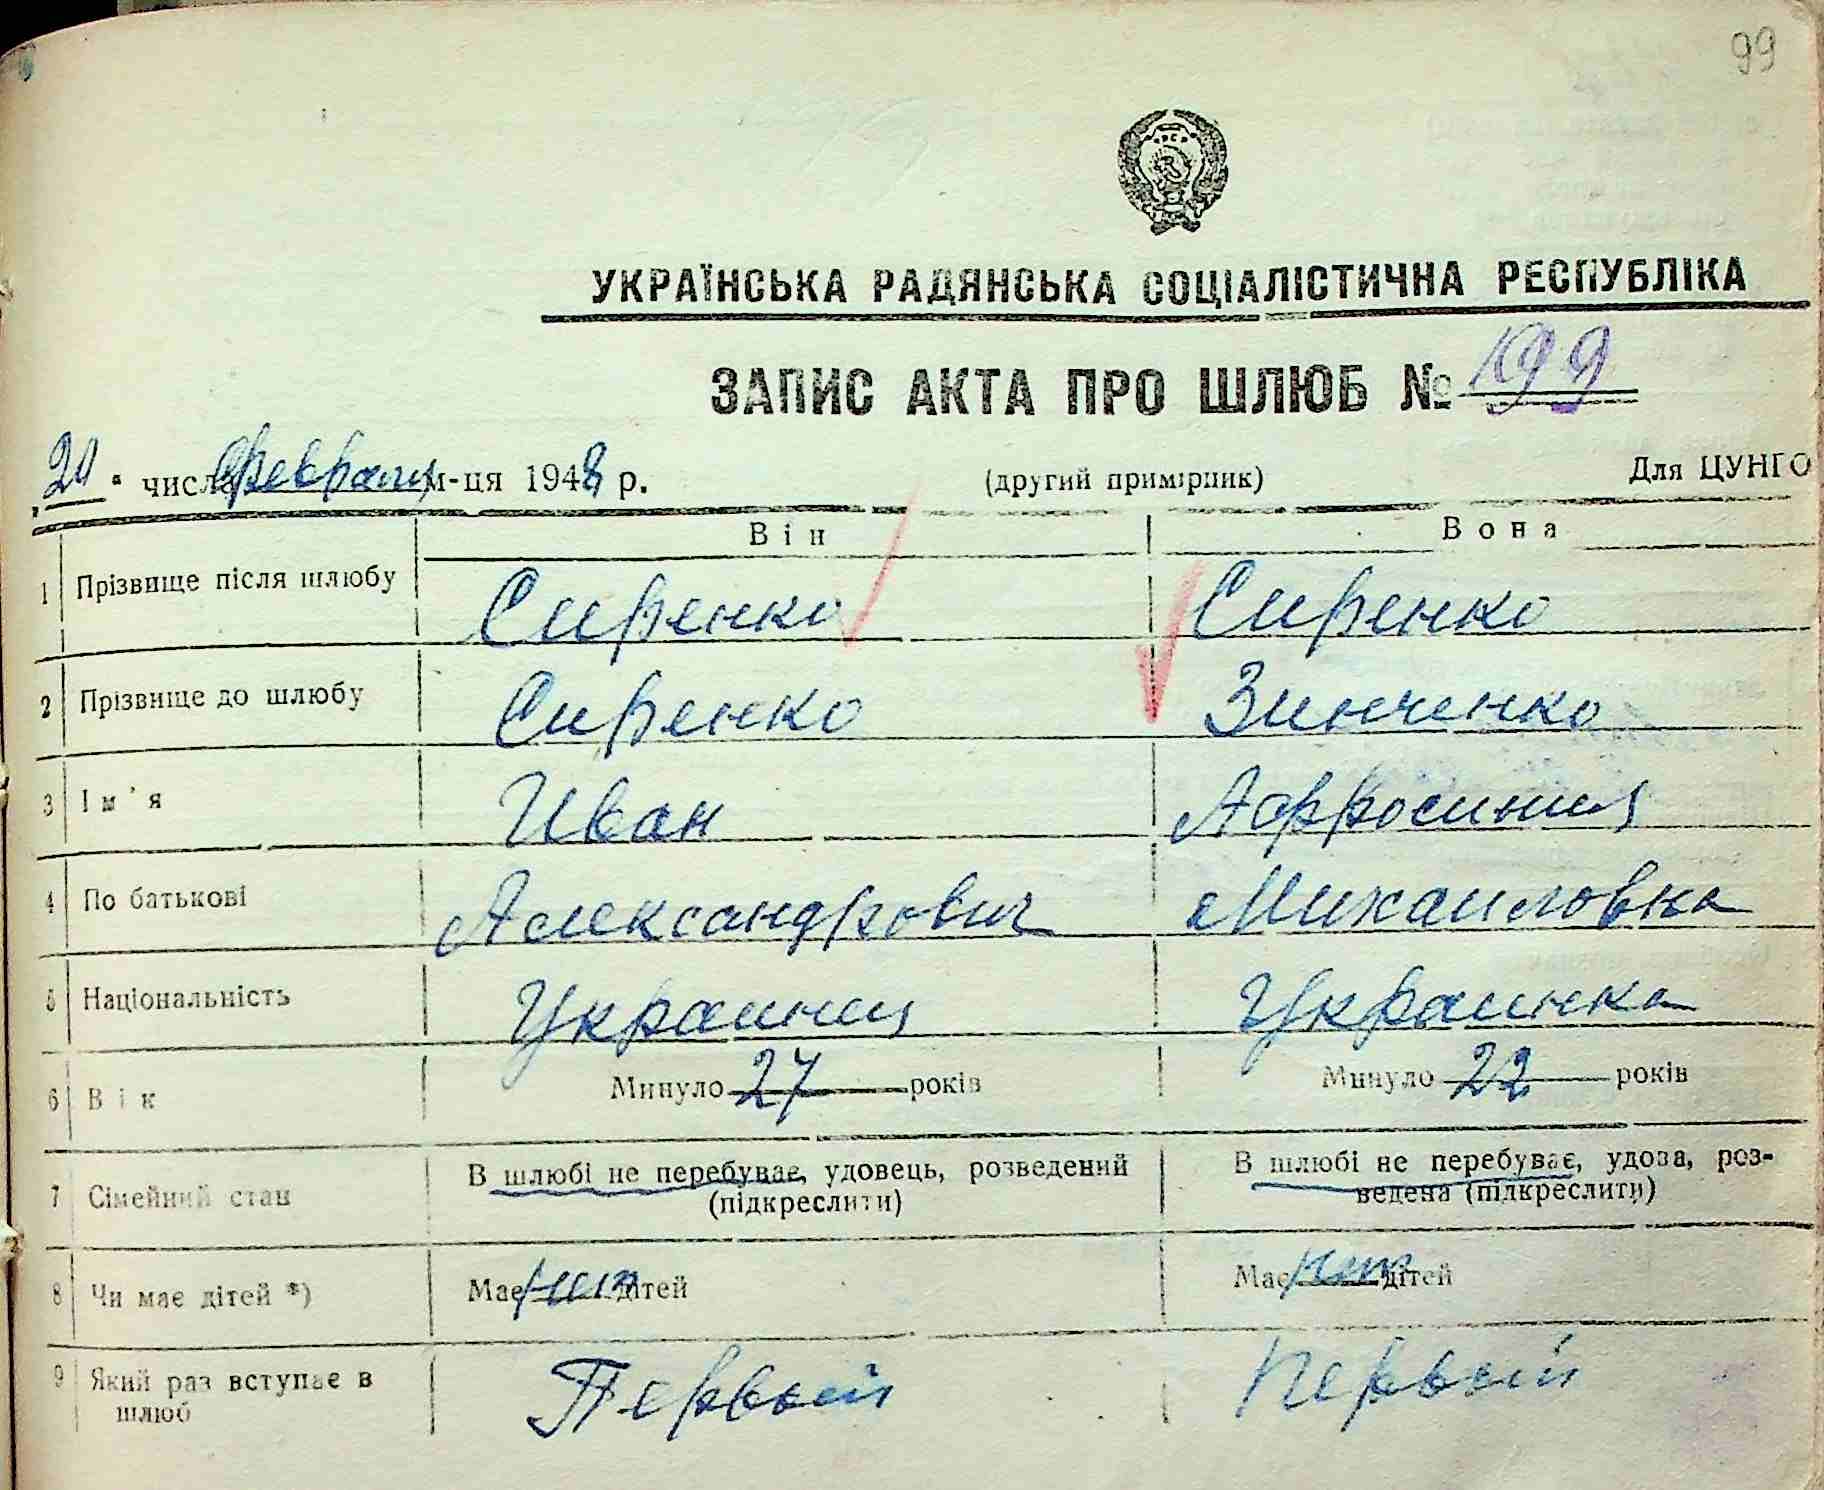 99
УКРАЇНСЬКА РАДЯНСЬКА СОЦІАЛІСТИЧНА РЕСПУБЛІКА
ЗАПИС АКТА ПРО ШЛЮБ № 199
„20“ числа Февраля м-ця 1948 р. (другий примірник) Для ЦУНГО
Він Вона
1 Прізвище після шлюбу Сиренко Сиренко
2 Прізвище до шлюбу Сиренко Зинченко
3 Ім'я Иван Афросиния
4 По батькові Александрович Михаиловна
5 Національність Украинец Украинка
6 Вік Минуло 27 років Минуло 22 років
7 Сімейний стан В шлюбі не перебуває, удовець, розведений (підкреслити) В шлюбі не перебуває, удова, роз-
ведена (підкреслити)
8 Чи має дітей *) Має нет дітей Має нет дітей
9 Який раз вступає в шлюб Первый Первый